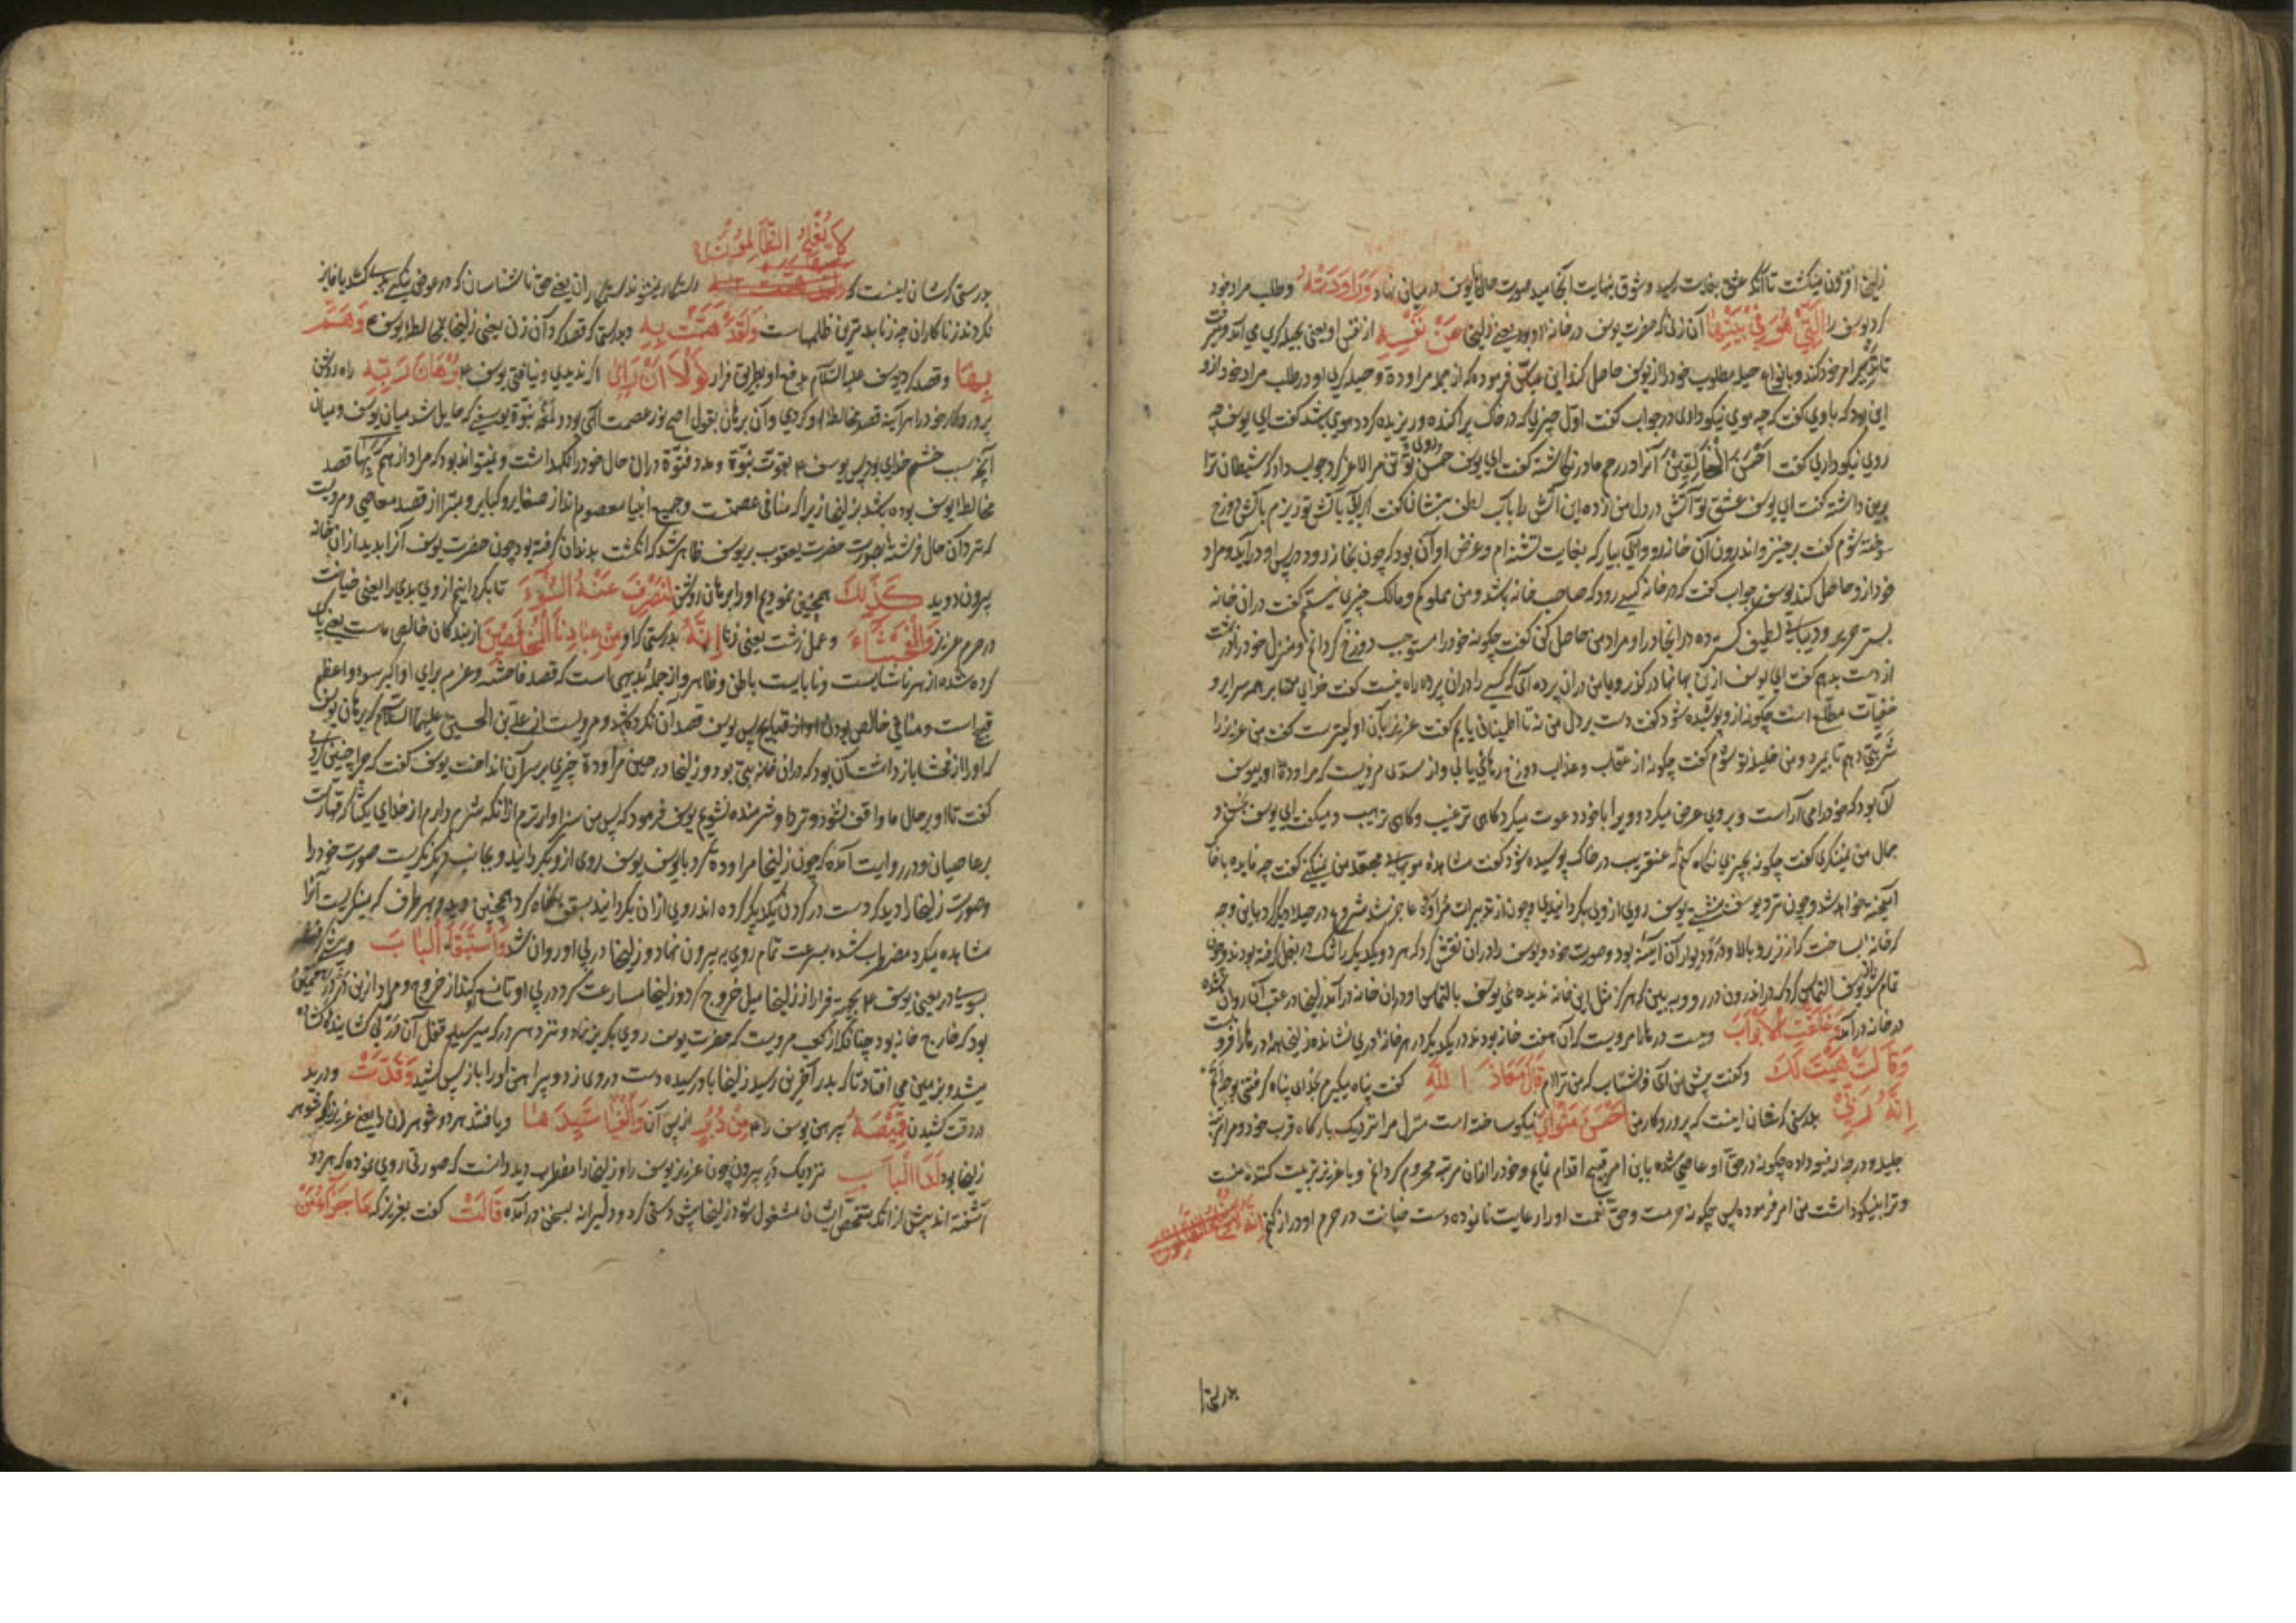 زلیخا افزون میکشت تا آنکه عشق بغایت رسید و شوق بنهایت انجامید صورت حال با یوسف در میان نهاد وَرَاوَدَتْهُ و طلب مراد خود
کرد یوسف را الَّتِیْ هُوَ فِیْ بَیْتِهَا آن زنی که حضرت یوسف در خانه او بود یعنی زلیخا عَنْ نَفْسِهٖ از نفس او یعنی بحیله کری می آمد
تا بتدبیر رام خود کند و بانواع حیله مطلوب خود را از یوسف حاصل کند ابن عباس فرموده که از جمله مراودة و حیله کری او در طلب مراد خود از و
این بود که با وی کفت که چه موی نیکو داری در جواب کفت اول چیزی که در خاک پراکنده و ریزیده کردد موی باشد کفت ای یوسف چه
روی نیکو داری کفت اَحْسَنُ الْخَالِقِیْنَ آنرا در رحم مادر نکاشته کفت ای یوسف حسن روی تو تن مرا لاغر کرد جواب داد که شیطان ترا
برین داشته کفت ای یوسف عشق تو آتش در دل من زده این آتش را بآب لطف بنشان کفت اگر بآتش تو نیزم بآتش دوزخ
سوخته شوم کفت برخیز و اندرون آن خانه رو و آبی بیار که بغایت تشنه ام و غرض او آن بود که چون بخانه رود در پس او درآید و مراد
خود از و حاصل کند یوسف جواب کفت که در خانه کسی رود که صاحب خانه باشد و من مملوکم و مالک چیزی نیستم کفت در آن خانه
بستر حریر و دیبای لطیف کسترده در آنجا درا و مراد من حاصل کن کفت چکونه خود را مستوجب دوزخ کردانم و منزل خود را از بهشت
از دست بدهم کفت ای یوسف ازین بهانها در کذر و با من در آن پرده آی که کسی را در آن پرده راه نیست کفت خدای تعالی بر همه سرایر و
خفیات مطلع است چکونه از و پوشیده شود کفت دست بر دل من نه تا اطمینان یابم کفت عزیز بآن اولیترست کفت من عزیز را
شربتی دهم تا بمیرد و من خلیله تو شوم کفت چکونه از عقاب و عذاب دوزخ رهائی یابی و از سدی مرویست که مراودة او یوسف
آن بود که خود را می آراست و بروی عرض میکرد و ویرا با خود دعوت میکرد کاهی ترغیب و کاهی ترهیب و میکفت ای یوسف بحسن و
جمال من بنکر کفت چکونه بچیزی نکاه کنم که عنقریب در خاک پوسیده شود کفت مشاهده مویهای مجعد من کفت چه فایده با خاک
آمیخته خواهد شد و چون نزد یوسف نشستی یوسف روی از وی بکردانیدی و چون از تدبیرات مراوده عاجز شد شروع در حیله دیکر کرد باین وجه
که خانه ساخت که از زیر و بالا و در و دیوار آن آینه بود و صورت خود و یوسف را در آن نقش کرد که هر دو یکدیکر را تنک در بغل کرفته بودند و چون
تمام شد از یوسف التماس کرد که در اندرون در رو و ببین که هرکز مثل این خانه ندیده ئی یوسف بالتماس او در آن خانه درآمد زلیخا در عقب آن روان شده
در خانه درآمد وَغَلَّقَتِ الْاَبْوَابَ و ببست درها را مرویست که آن هفت خانه بودند در یکدیکر در هر خانه دری نشانده زلیخا همه درها را فرو بست
وَقَالَتْ هَیْتَ لَکَ و کفت پیش من آی و شتاب که من ترا ام قَالَ مَعَاذَ اللّٰهِ کفت پناه میکیرم بخدای پناه کرفتنی
اِنَّهٗ رَبِّیْ بدرستی که شان اینست که پروردکار من اَحْسَنَ مَثْوَایَ نیکو ساخته است منزل مرا نزدیک بارکاه قرب خود و مراتب
جلیله و درجه رفیعه داده چکونه در حق او عاصی شده باین امر قبیح اقدام نمایم و خود را از آن مرتبه محروم کردانم و یا عزیز تربیت کننده منست
و ترا بنیکو داشت من امر فرموده پس چکونه حرمت و حق نعمت او را رعایت نا نموده دست خیانت در حرم او دراز کنم اِنَّهٗ
بدرستی
لَا یُفْلِحُ الظَّالِمُوْنَ
بدرستی که شان اینست که رستکار نمیشوند ستمکاران یعنی حق ناشناسان که در عوض نیکی بدی کنند یا فایز
نکردند زناکاران چه زنا بدترین ظلمهاست وَلَقَدْ هَمَّتْ بِهٖ و بدرستی که قصد کرد آن زن یعنی زلیخا بمخالطه یوسف ع وَهَمَّ
بِهَا و قصد کرد یوسف علیه السلام بدفع او بطریق فرار لَوْلَا اَنْ رَاٰی اکر ندیدی و نیافتی یوسف ع بُرْهَانَ رَبِّهٖ راه روشن
پروردکار خود را هرآینه قصد مخالطه او کردی و آن برهان بقول اصح نور عصمت الهی بود و لمعه نبوة یوسفی که حایل شد میان یوسف و میان
آنچه سبب خشم خدای بود پس یوسف ع بقوت نبوة و مدد فتوة در آن حال خود را نکهداشت و نمیتواند بود که مراد از هَمَّ بِهَا قصد
مخالطه یوسف بوده باشد بزلیخا زیرا که منافی عصمتست و جمیع انبیا معصوم اند از صغایر و کبایر و مبرا از قصد معاصی و مرویست
که در آن حال فرشته بصورت حضرت یعقوب بر یوسف ظاهر شد که انکشت بدندان کرفته بود چون حضرت یوسف آنرا بدید از آن خانه
بیرون دوید کَذٰلِکَ همچنین نمودیم او را برهان روشن لِنَصْرِفَ عَنْهُ السُّوْءَ تا بکردانیم از وی بدی را یعنی خیانت
در حرم عزیز وَالْفَحْشَاءَ و عمل زشت یعنی زنا اِنَّهٗ بدرستی که او مِنْ عِبَادِنَا الْمُخْلَصِیْنَ از بندکان خالص ماست یعنی پاک
کرده شده از هر ناشایست و نابایست باطن و ظاهر و از جمله بدیهی است که قصد فاحشه و عزم برای او اکبر سوء و اعظم
قبح است و منافی خالص بودن او از قبایح پس یوسف قصد آن نکرده باشد و مرویست از علی بن الحسین علیهما السلام که برهان یوسف
که او را از فحشا باز داشت آن بود که در آن خانه بتی بود و زلیخا در حین مراودة چیزی بر سر آن انداخت یوسف کفت که چرا چنین کردی
کفت تا او بر حال ما واقف نشود و نزد او شرمنده نشویم یوسف فرمود که پس من سزاوارترم از آنکه شرم دارم از خدای یکتا که قهارست
بر عاصیان و در روایت آمده که چون زلیخا مراوده کرد با یوسف یوسف روی از و بکردانید و بجانب دیکر نکریست صورت خود را
و صورت زلیخا را دید که دست در کردن یکدیکر کرده اند روی از آن بکردانید بسقف نکاه کرد همچنین دید و بهر طرف که مینکریست آنرا
مشاهده میکرد مضطرب شده بسرعت تمام روی به بیرون نهاد و زلیخا در پی او روان شد وَاسْتَبَقَا الْبَابَ
بسوی در یعنی یوسف ع بجهت فرار از زلیخا میل خروج کرد و زلیخا مسارعت کرد در پی او تا منع کند از خروج و مراد ازین در در همین
بود که خارج خانه بود چنانکه از کعب مرویست که حضرت یوسف روی بکریز نهاد و نزد هر در که میرسید قفل آن در بی کشاینده کشاده
میشد و بزمین می افتاد تا که بدر آخرین رسید زلیخا باو رسیده دست در وی زد و پیراهن او را باز پس کشید وَقَدَّتْ و درید
در وقت کشیدن قَمِیْصَهٗ پیرهن یوسف را مِنْ دُبُرٍ از پس آن وَاَلْفَیَا سَیِّدَهَا و یافتند هر دو شوهر آن زن را یعنی عزیز که شوهر
زلیخا بود لَدَا الْبَابِ نزدیک در بیرون چون عزیز یوسف را و زلیخا را مضطرب دید دانست که صورتی روی نموده که هر دو
آشفته اند پیش از آنکه بتفحص ایشان مشغول شود زلیخا پیش دستی کرده و دلیرانه بسخن درآمده قَالَتْ کفت بعزیز که مَا جَزَاءُ مَنْ